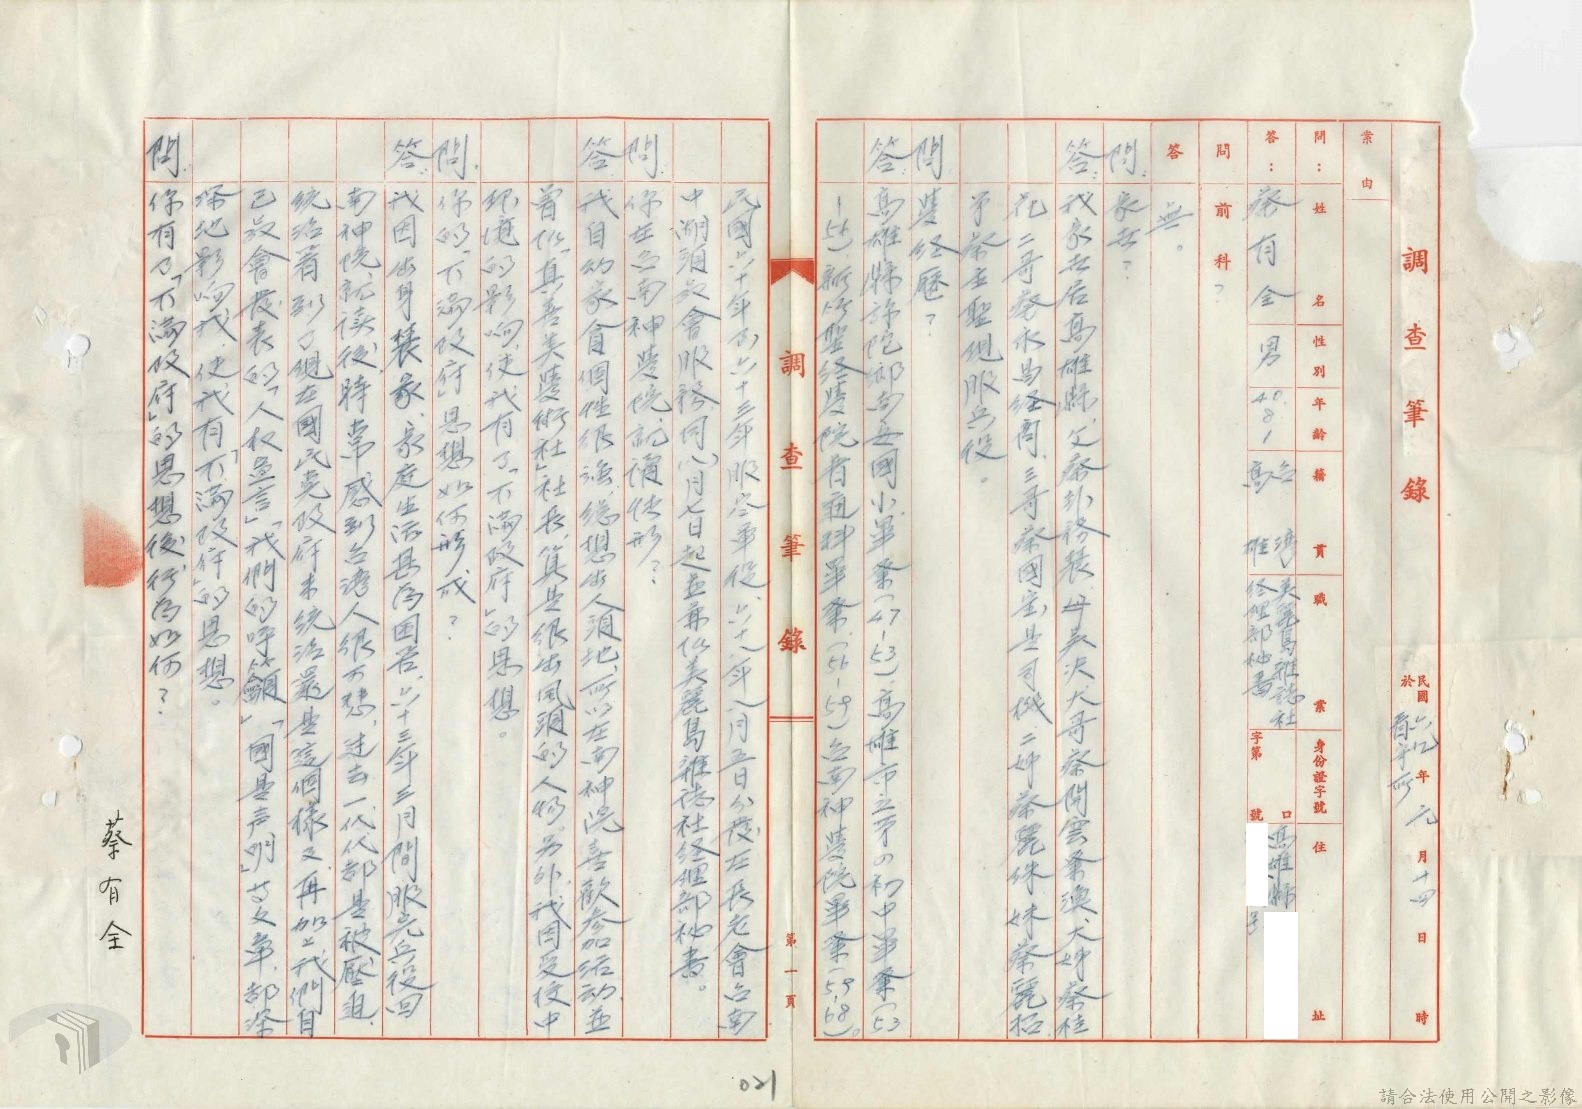 調查筆錄
民國六九年元月廿四日 時
於看守所
案由
問：姓名 性別 年齡 籍貫 職業 身份證字號 住址
答：蔡有全 男 40.8.1 台灣高雄 美麗島雜誌社經理部祕書 字第 號 高雄縣
問 前科？
答 無。
問. 家世？
答. 我家世居高雄縣、父蔡 務農、母吳 大哥蔡開雲 大姊蔡桂
花、二哥蔡永昌經商、三哥蔡國 是司機、二姊蔡麗珠 妹蔡麗招
弟蔡 聖 服兵役。
問 學經歷？
答. 高雄縣 鄉南安國小畢業（47-53）、高雄市立第四初中畢業（53
-56）、新竹聖經學院普通科畢業、（56-59）台南神學院畢業（59-68）。
民國六十年至六十三年服空軍役、六十八年八月五日分發在長老會台南
中 湖頭教會服務、同八月七日起並兼任美麗島雜誌社經理部祕書。
問. 你在台南神學院就讀情形？
答. 我自幼家貧個性很強、總想出人頭地、所以在南神院喜歡參加活動、並
曾任「真善美學術社」社長、算是很出風頭的人物。另外、我因受校中
環境的影响、使我有了「不滿政府」的思想。
問. 你的「不滿政府」思想如何形成？
答. 我因出身農家、家庭生活甚為困苦、六十三年三月間服完兵役回
南神院就讀後、時常感到台灣人很可悲、過去一代代都是被壓迫、
統治着、到了現在國民党政府来統治還是這個樣子、再加上我們自
己教會發表的「人权宣言」「我們的呼籲」「國是声明」等文章、都深
深地影响我、使我有「不滿政府」的思想。
問. 你有了「不滿政府」的思想後、行為如何？
調查筆錄
第一頁
蔡有全
021
請合法使用公開之影像